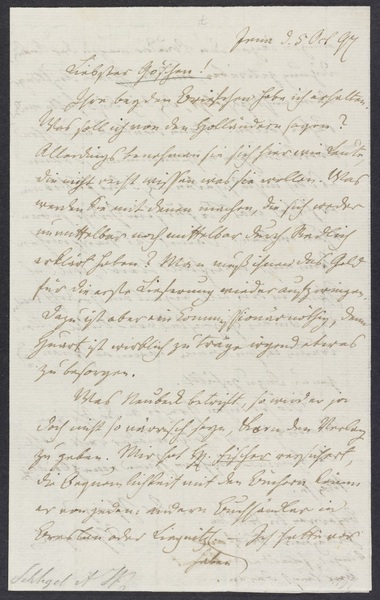 Jena d. 5 Oct 97
Liebster Göschen!
Ihre beyden Briefe habe ich erhalten.
Was soll ich von den Holländern sagen?
Allerdings benehmen sie sich hier wie Leute
die nicht recht wissen was sie wollen. Was
werden Sie mit denen machen, die sich weder
unmittelbar noch mittelbar durch
erklärt haben? Man muß ihnen das Geld
für die erste Lieferung wieder aufzwingen.
Dazu ist aber ein Commissionär nöthig, denn
ist wirklich zu träge irgend etwas
zu besorgen.
Was Neubeck betrifft, so wird er ja
doch nicht so närrisch seyn, den Verlag
zu geben. Mir hat versichert,
die Bequemlichkeit mit den Büchern könne
er von jedem andern Buchhändler in
Breslau oder Liegnitz — Ich hatte vor
haben
Schlegel A W